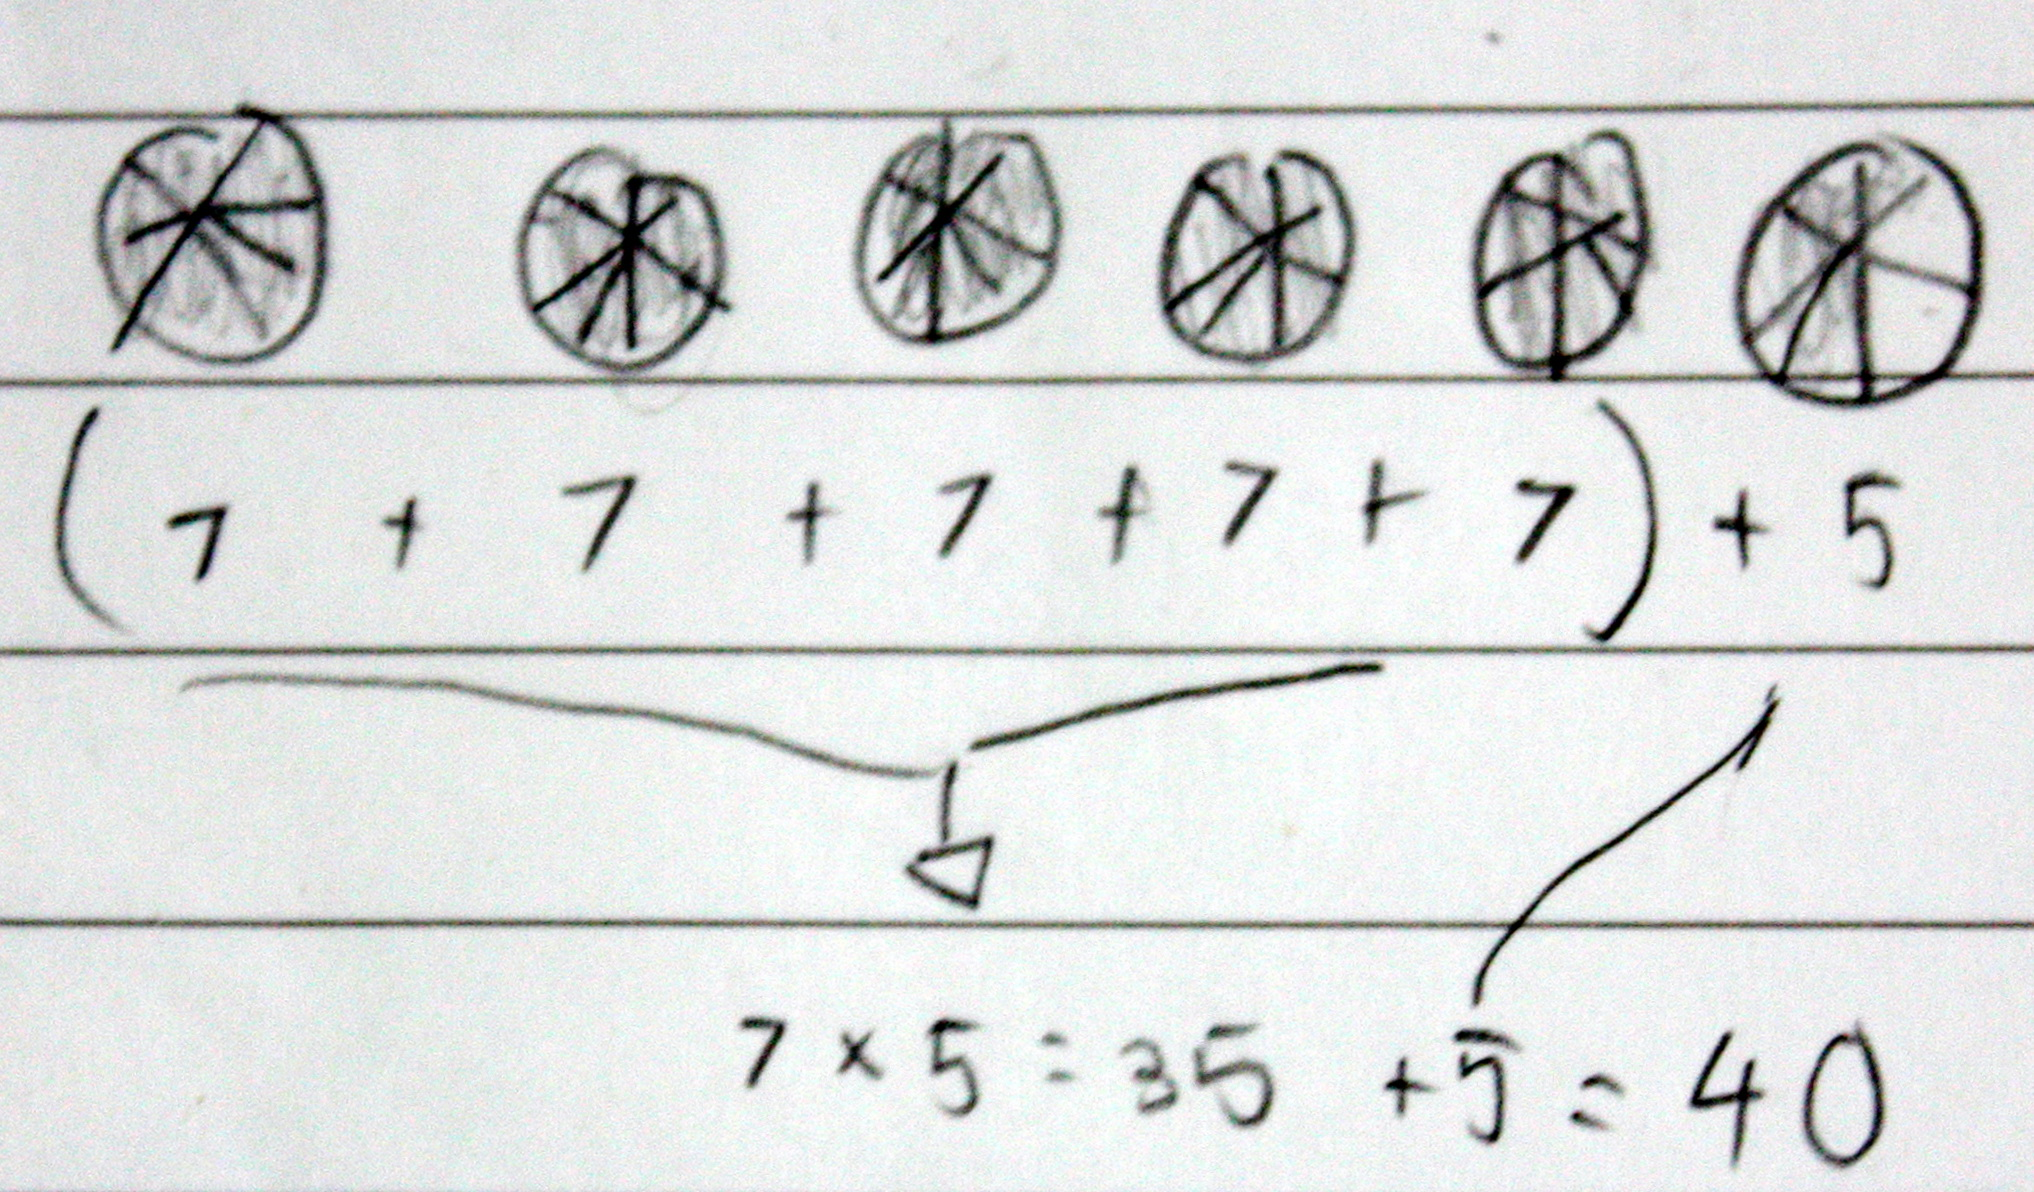 (7 + 7 + 7 + 7 + 7) + 5
7 × 5 = 35 + 5 = 40